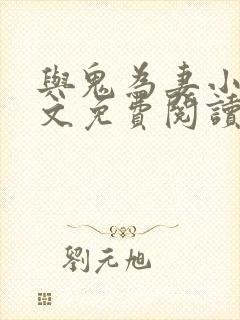 與鬼為妻小
文免費閱讀
劉元旭